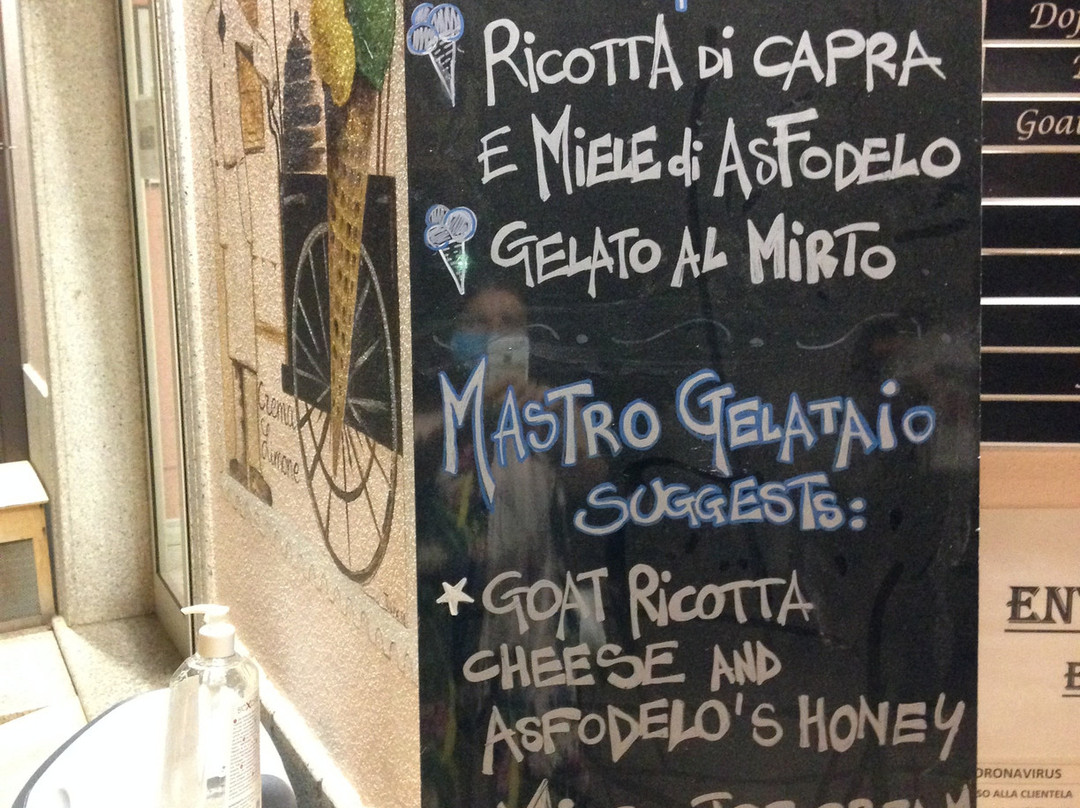 RICOTTA Di CAPRA
E MIELE di ASFODELO
GELATO AL MIRTO
MASTRO GELATAIO
SUGGESTS:
GOAT RICOTTA
CHEESE AND
ASFODELO'S HONEY
Crema
Limone
Goat
ORONAVIRUS
SO ALLA CLIENTELA